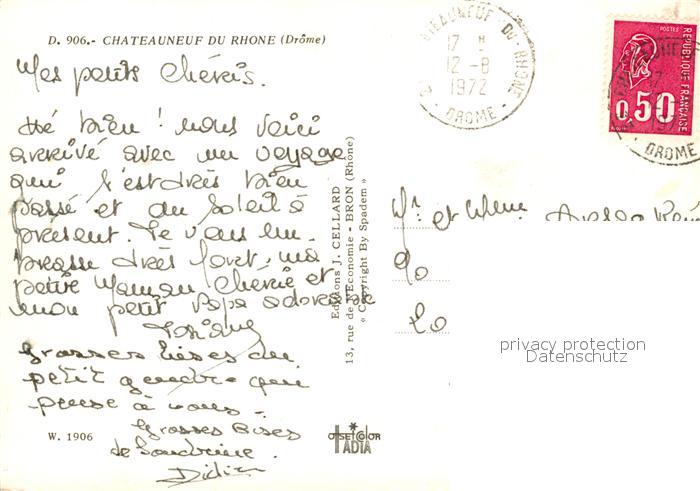 D. 906.- CHATEAUNEUF DU RHONE (Drôme)
Mes petits Chéris.
Hé bien ! nous voici
arrivé avec un voyage
qui s'est très bien
passé et du soleil à
présent. Je vous em
brasse très fort, ma
petite Maman Chérie et
mon petit Papa adoré
Grosses bises du
petit gendre qui
pense à vous.
Grosses Bises
de Sandrine.
Didier
W. 1906
Editions J. CELLARD
13, rue de l'Economie - BRON (Rhône)
« Copyright By Spadem »
OFFSETCOLOR
IADIA
CHATEAUNEUF-DU-RHONE
17 H
12-8
1972
DROME
POSTES
REPUBLIQUE FRANÇAISE
0,50
DROME
Mr et Mme
90
20
privacy protection
Datenschutz